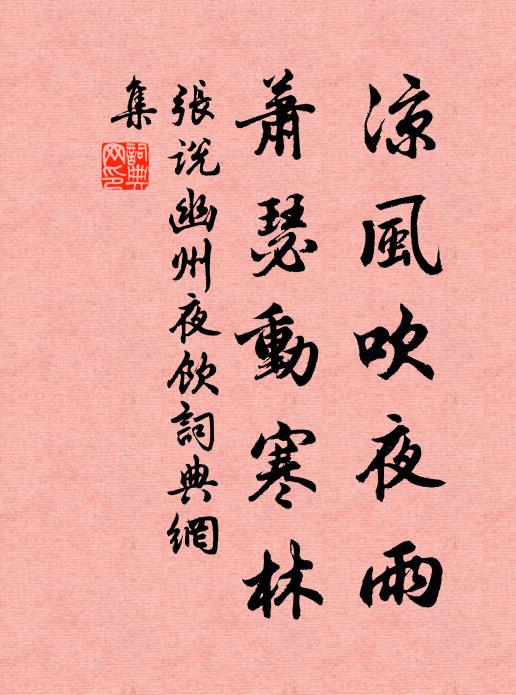 凉風吹夜雨
蕭瑟動寒林
張說幽州夜飲詞典網
集
詞典
网印